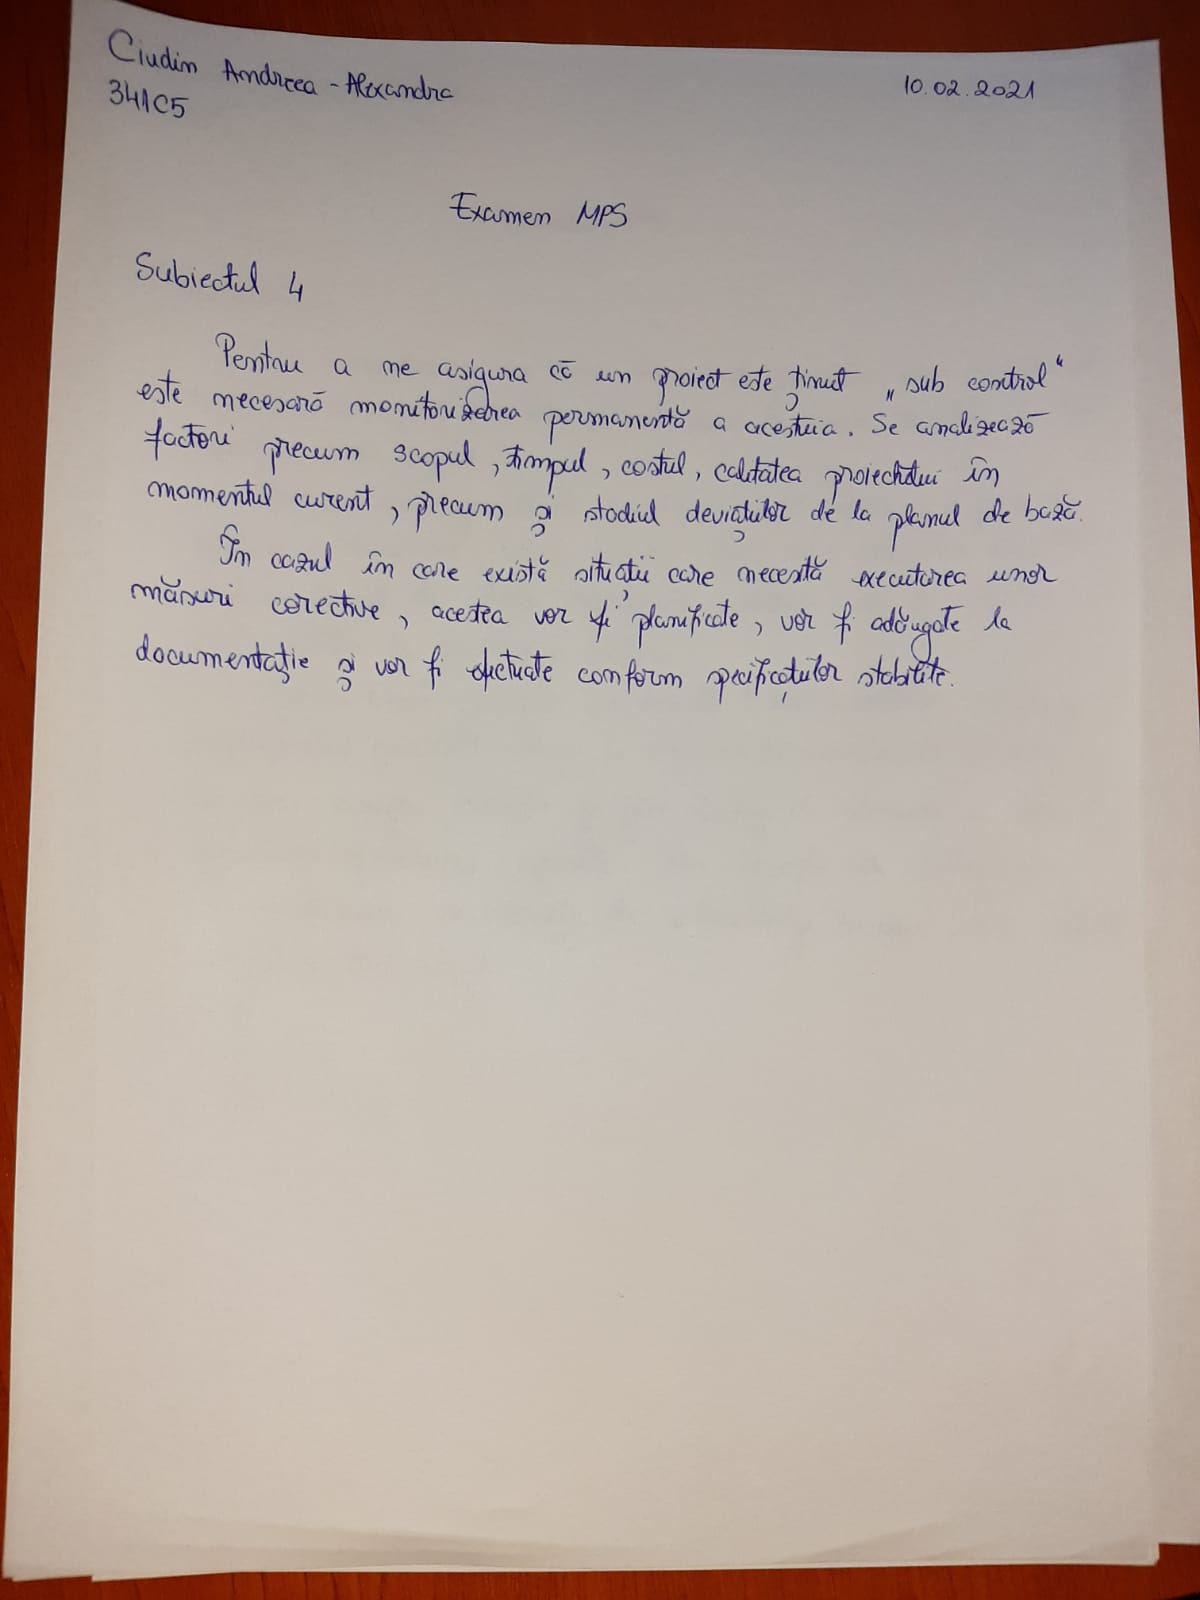 Ciudin Andreea-Alexandra
341C5
10.02.2021
Examen MPS
Subiectul 4
Pentru a me asigura că un proiect este ținut „sub control“
este necesară monitorizarea permanentă a acestuia. Se analizează
factori precum scopul, timpul, costul, calitatea proiectului în
momentul curent, precum și stadiul deviațiilor de la planul de bază.
În cazul în care există situații care necesită executarea unor
măsuri corective, acestea vor fi planificate, vor fi adăugate la
documentație și vor fi efectuate conform specificațiilor stabilite.